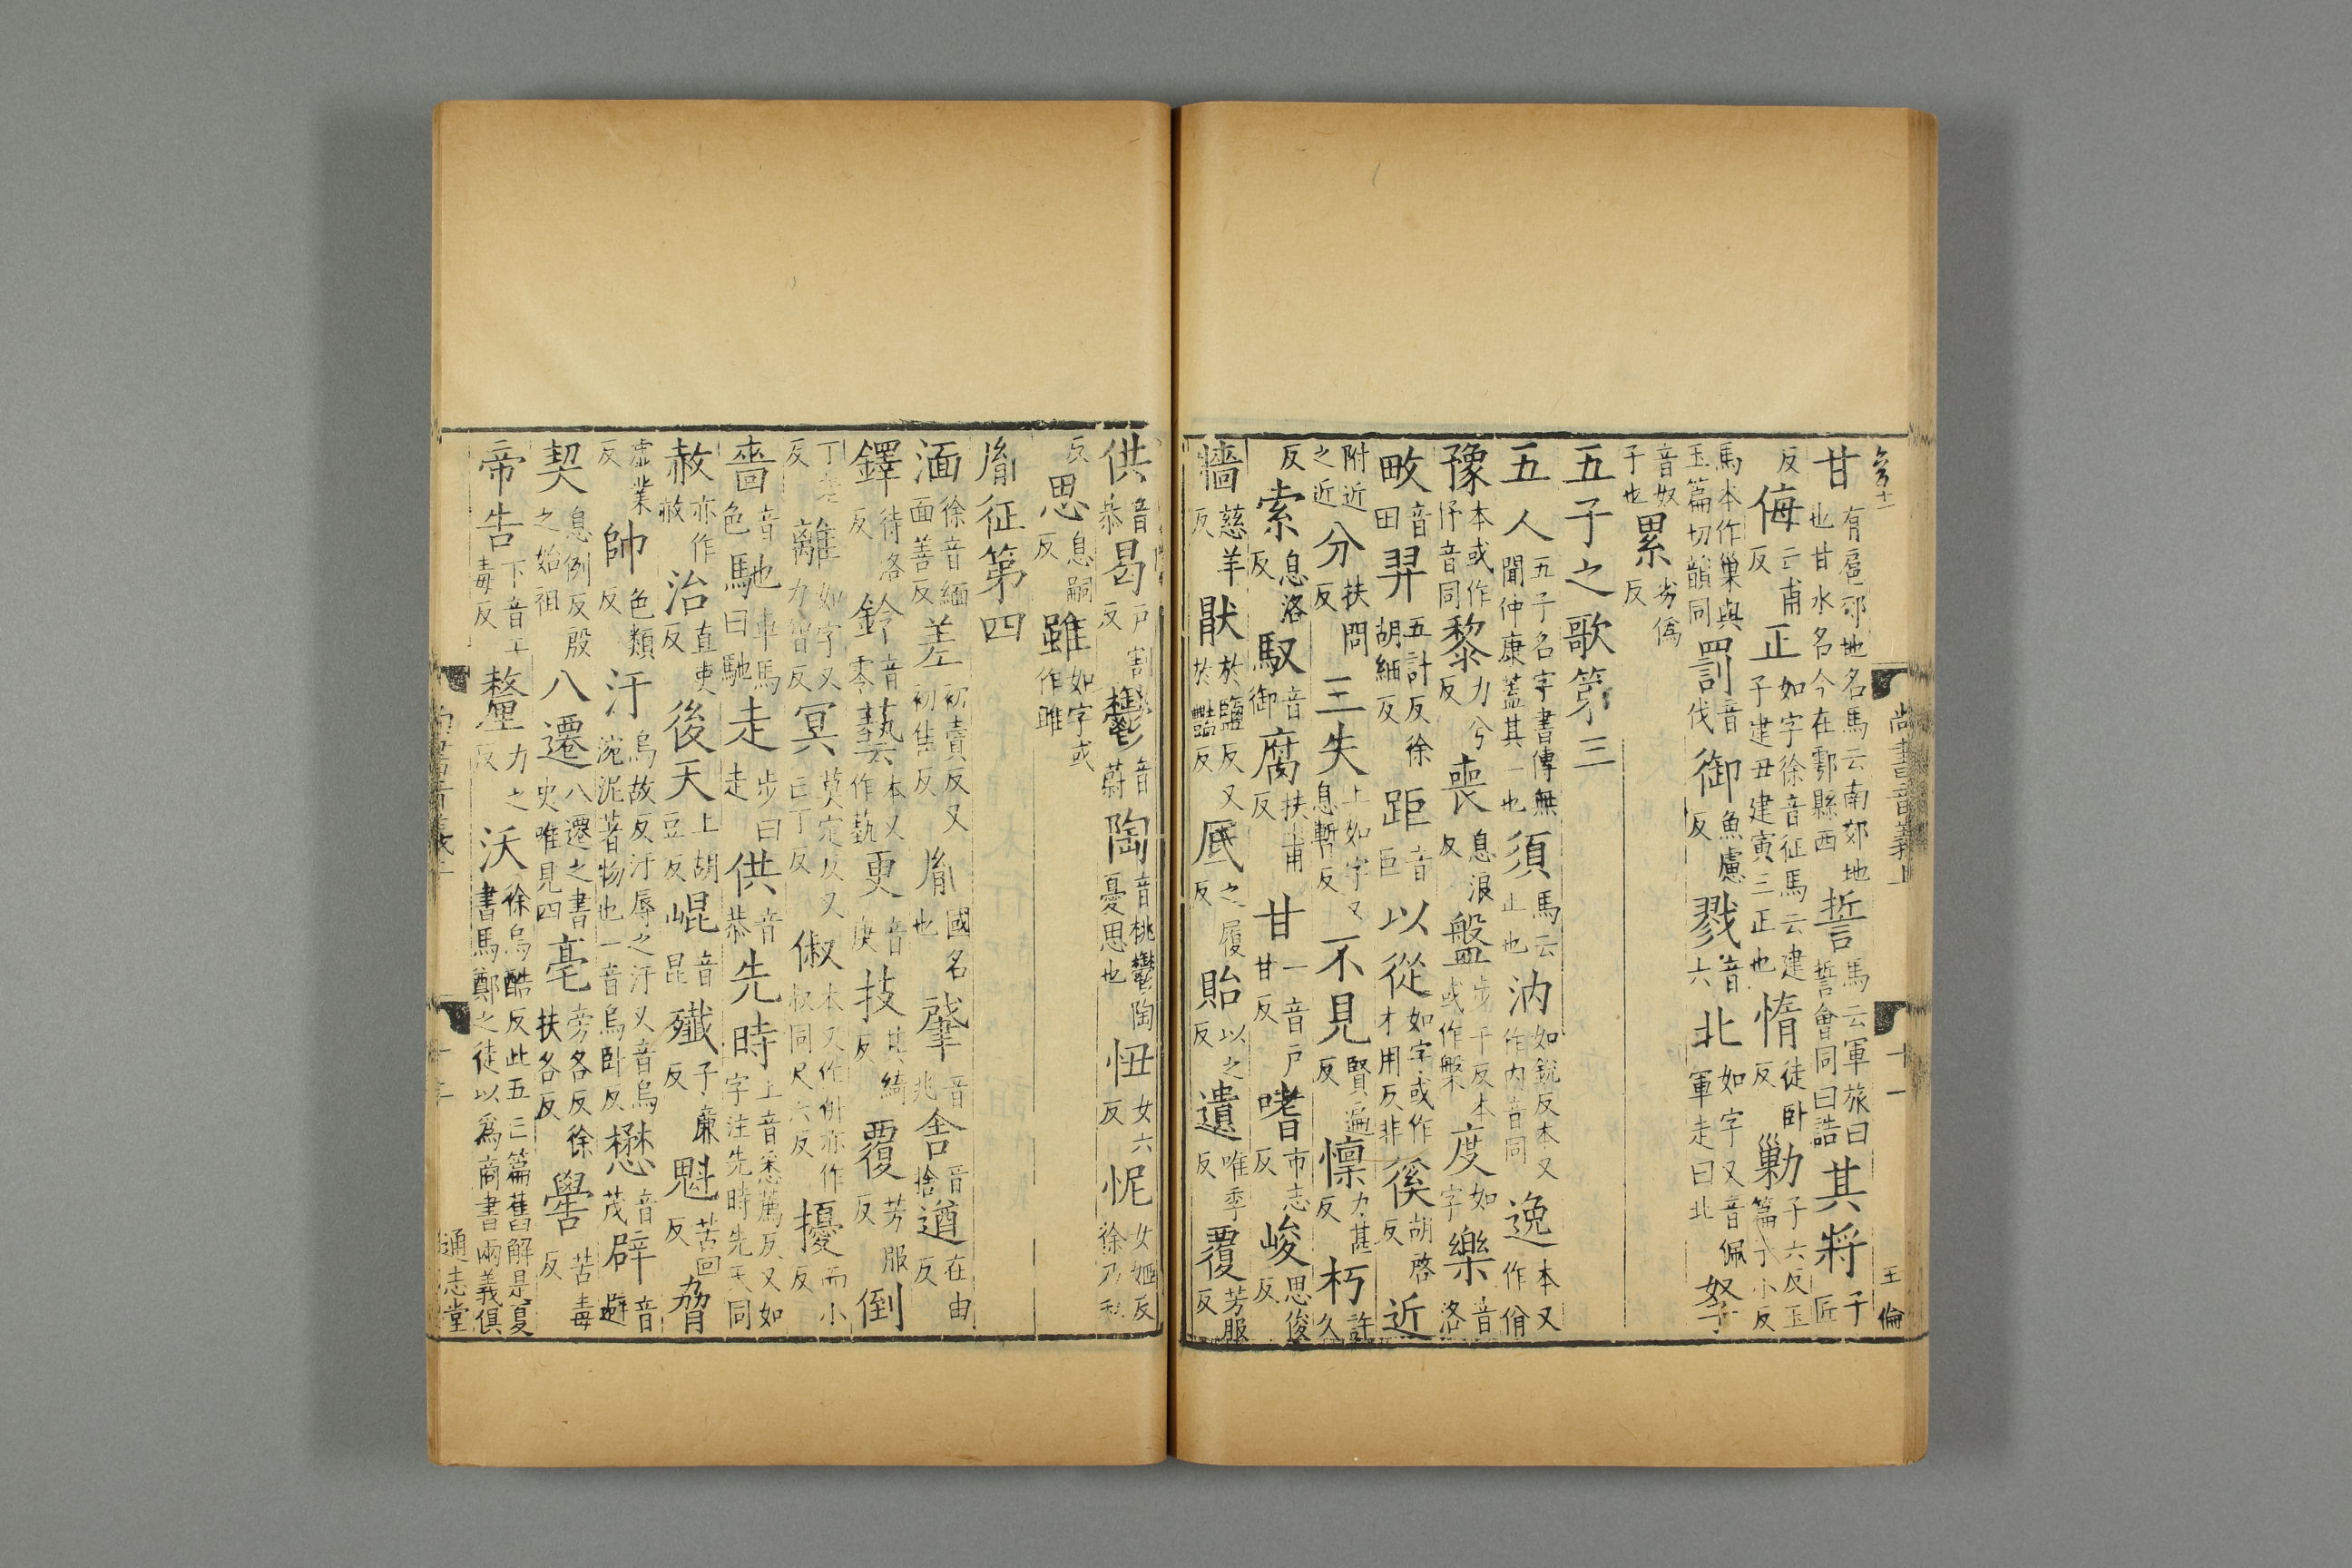 甘有扈郊地名馬云南郊地也甘水名今在鄠縣西誓馬云軍旅曰誓會同曰誥其將子匠
反侮亡甫反正如字徐音征馬云建子建丑建寅三正也惰徒卧反勦子六反玉篇子小反
馬本作巢與玉篇切韻同罰音伐御魚慮反戮音六北如字又音佩軍走曰北孥
音奴子也累劣偽反
五子之歌第三
五人五子名字書傳無聞仲康蓋其一也須馬云止也汭如銳反本又作内音同逸本又作佾
豫本或作忬音同黎力兮反喪息浪反盤步干反本或作槃度如字樂音洛
畋音田羿五計反徐胡細反距音巨以從如字或作才用反非徯胡啓反近
附近之近分扶問反三失上如字又息暫反不見賢遍反懍力甚反朽許久
反索息洛反馭音御腐扶甫反甘一音戶甘反嗜市志反峻思俊反
牆慈羊反厭於鹽反又於豔反厎之履反貽以之反遺唯季反覆芳服反
供音恭曷戶割反鬱音蔚陶音桃鬱陶憂思也忸女六反怩女姬反徐乃私
反思息嗣反雖如字或作雖
胤征第四
湎徐音緬面善反差初賣反又初隹反胤國名也肇音兆舍音捨遒在由反
鐸待洛反鈴音零藝本又作埶更音庚技其綺反覆芳服反倒
丁老反離如字又力智反冥莫定反又亡丁反俶本又作㑐亦作叔同尺六反擾而小反
嗇音色馳車馬曰馳走步曰走供音恭先時上音悉薦反又如字注先時先天同
赦亦作㪇治直吏反後天上胡豆反崐音昆殲子廉反魁苦回反脅
虛業反帥色類反汙烏故反汙辱之汙又音烏涴泥著物也一音烏卧反懋音茂辟音避
契息例反殷之始祖八遷八遷之書史唯見四亳旁各反徐扶各反嚳苦毒反
帝告下音工毒反釐力之反沃徐烏酷反此五亡篇舊解是夏書馬鄭之徒以爲商書兩義俱
尚書音義上
十一
王倫
通志堂